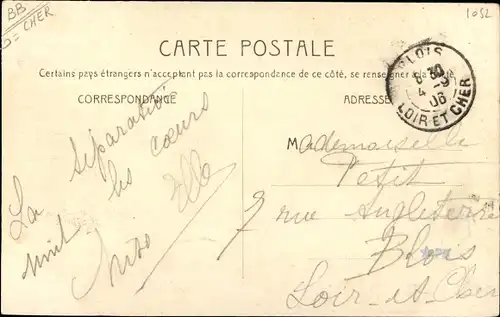 BB
= CHER
1052
CARTE POSTALE
Certains pays étrangers n'acceptant pas la correspondance de ce côté, se renseigner à la poste
CORRESPONDANCE
ADRESSE
BLOIS
4 -9
06
LOIR ET CHER
La séparation
unit les cœurs
Elle
Mademoiselle
Petit
7 rue Angleterre
Blois
Loir-et-Cher